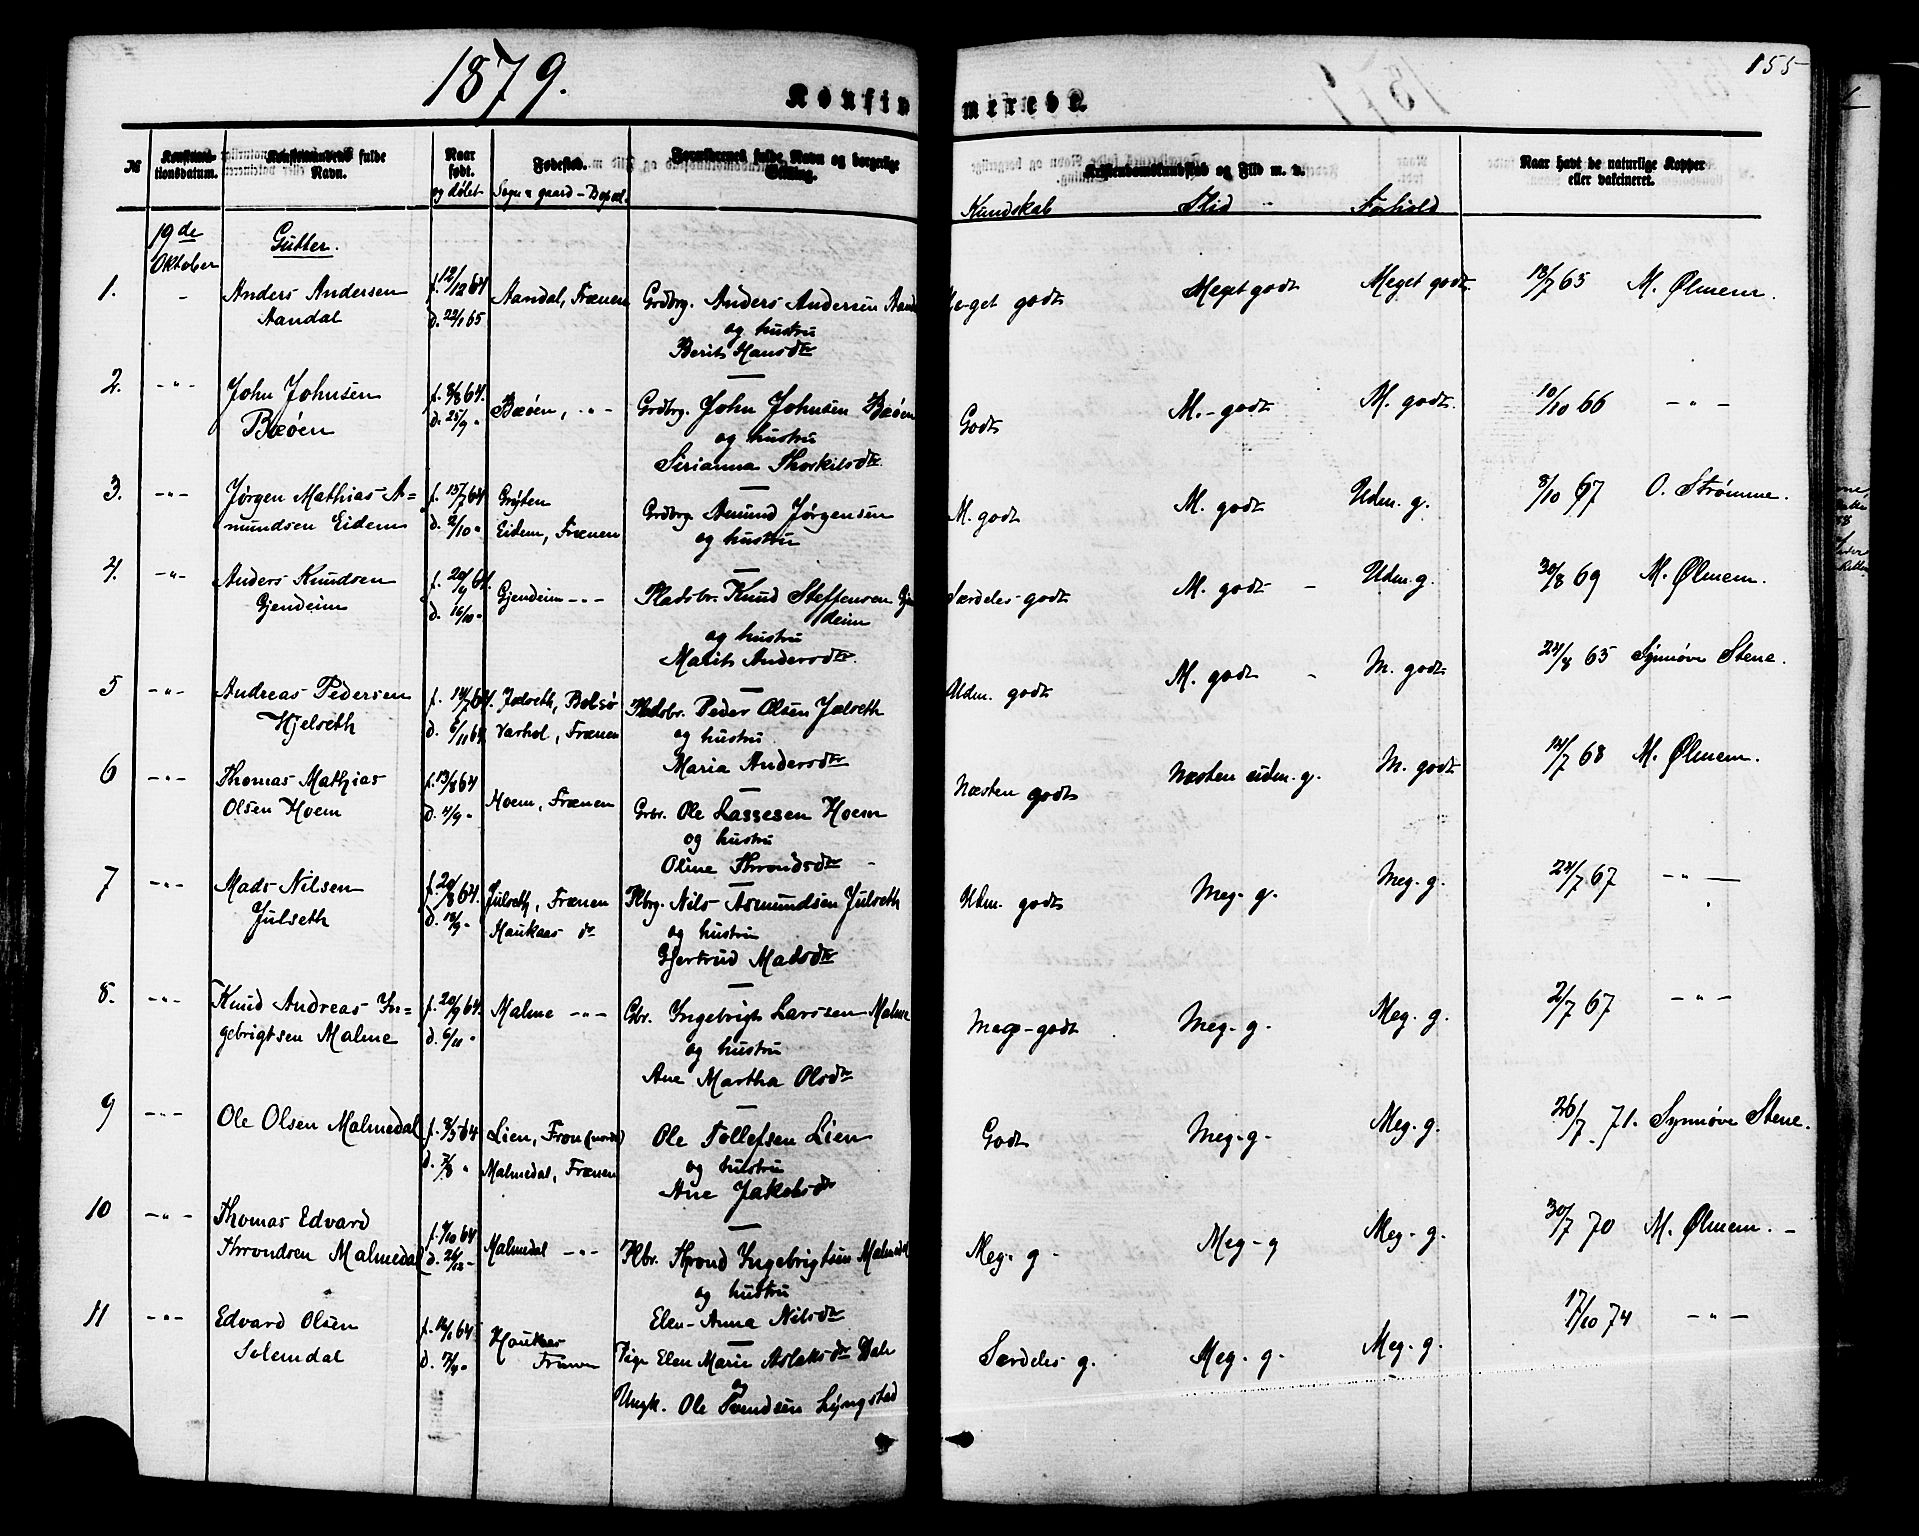 1879.
155
Konfir
merede.
№
Konfirma-
tionsdatum.
Konfirmandens fulde
Navn.
Naar
født.
og døbt
Fødested.
Sogn & gaard - Bopæl.
Forældrenes fulde Navn og borgerlige
Stilling.
Kristendomskundskab og Flid m. v.
Kundskab Flid Forhold
Naar havt de naturlige Kopper
eller vakcineret.
19de
Oktober
Gutter.
1. Anders Andersen
Aandal
f. 12/12 64
d. 22/1 65
Aandal, Frænen
Grdbrg. Anders Andersen
og hustru
Berit Hansdtr
Meget godt Meget godt Meget godt 13/7 65 M. Ølmem.
2. -"- John Johnsen
Bæøen
f. 3/8 64.
d. 25/9 "
Bæøen, -"-
Grdbrg. John Johnsen Bæøen
og hustru
Sirianna Thorkilsdtr
Godt M. godt M. godt. 10/10 66 -"-
3. -"- Jørgen Mathias A-
mundsen Eidem
f. 15/7 64
d. 2/10 "
Grytten
Eidem, Frænen
Grdbrg. Amund Jørgensen
og hustru
M. godt M. godt Udm. g. 8/10 67 O. Strømme.
4. -"- Anders Knudsen
Gjendeim
f. 20/9 64.
d. 16/10 "
Gjendeim -"-
Pladsbr. Knud Steffensen Gjen
deim
og hustru
Marit Andersdtr.
Særdeles godt M. godt - Udm. g. 30/8 69 M. Ølmem.
5 -"- Andreas Pedersen
Hjelseth
f. 14/7 64.
d. 6/11 64
Jelseth, Bolsø
Varhol, Frænen
Pladsbr. Peder Olsen Jelseth
og hustru
Maria Andersdtr
Udm. godt M. godt - M. godt 24/8 65 Synnøve Stene.
6 -"- Thomas Mathias
Olsen Hoem
f. 13/8 64
d. 4/9 "
Hoem, Frænen
Grbr. Ole Lassesen Hoem
og hustru
Oline Throndsdtr
Næsten godt Næsten udm. g. M. godt 14/7 68 M. Ølmem.
7 -"- Mads Nilsen
Julseth
f. 20/8 64.
d. 18/9 "
Julseth, Frænen
Haukaas do
Plbrg. Nils Asmundsen Julseth
og hustru
Gjertrud Madsdtr
Udm. godt Meg. g. Meg. g. 24/7 67 -"-
8. -"- Knud Andreas In-
gebrigtsen Malme
f. 20/9 64.
d. 6/11 "
Malme -"-
Gbr. Ingebrigt Larssen Malme
og hustru
Ane Martha Olsdtr
Meg. godt Meg. g. Meg. g. 2/7 67 -"-
9 -"- Ole Olsen Malmedal
f. 3/5 64
d. 7/8 "
Lien, Fron (nordr)
Malmedal, Frænen
Ole Tollefsen Lien
og hustru
Ane Jakobsdtr
Godt Meg. g. Meg. g. 26/7 71. Synnøve Stene.
10 -"- Thomas Edvard
Throndsen Malmedal
f. 9/10 64
d. 26/12 -
Malmedal -"-
Plbr. Thrond Ingebrigtsen Malmedal
og hustru
Elen Anna Nilsdtr
Meg. g. Meg. g Meg. g. 30/7 70 M. Ølmem. -
11 -"- Edvard Olsen
Solemdal
f. 14/1 64
d. 7/9 "
Haukaas
Frænen
Pige Elen Marie Aslaksdtr Dale
og
Ungk. Ole Lyngstad
Særdeles g. Meg. g. Meg. g. 17/10 74 -"-